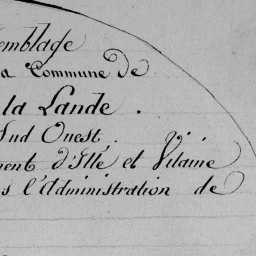 emblage
a Commune de
la Lande.
Sud Ouest.
ment d'Ille et Vilaine
s l'Administration de